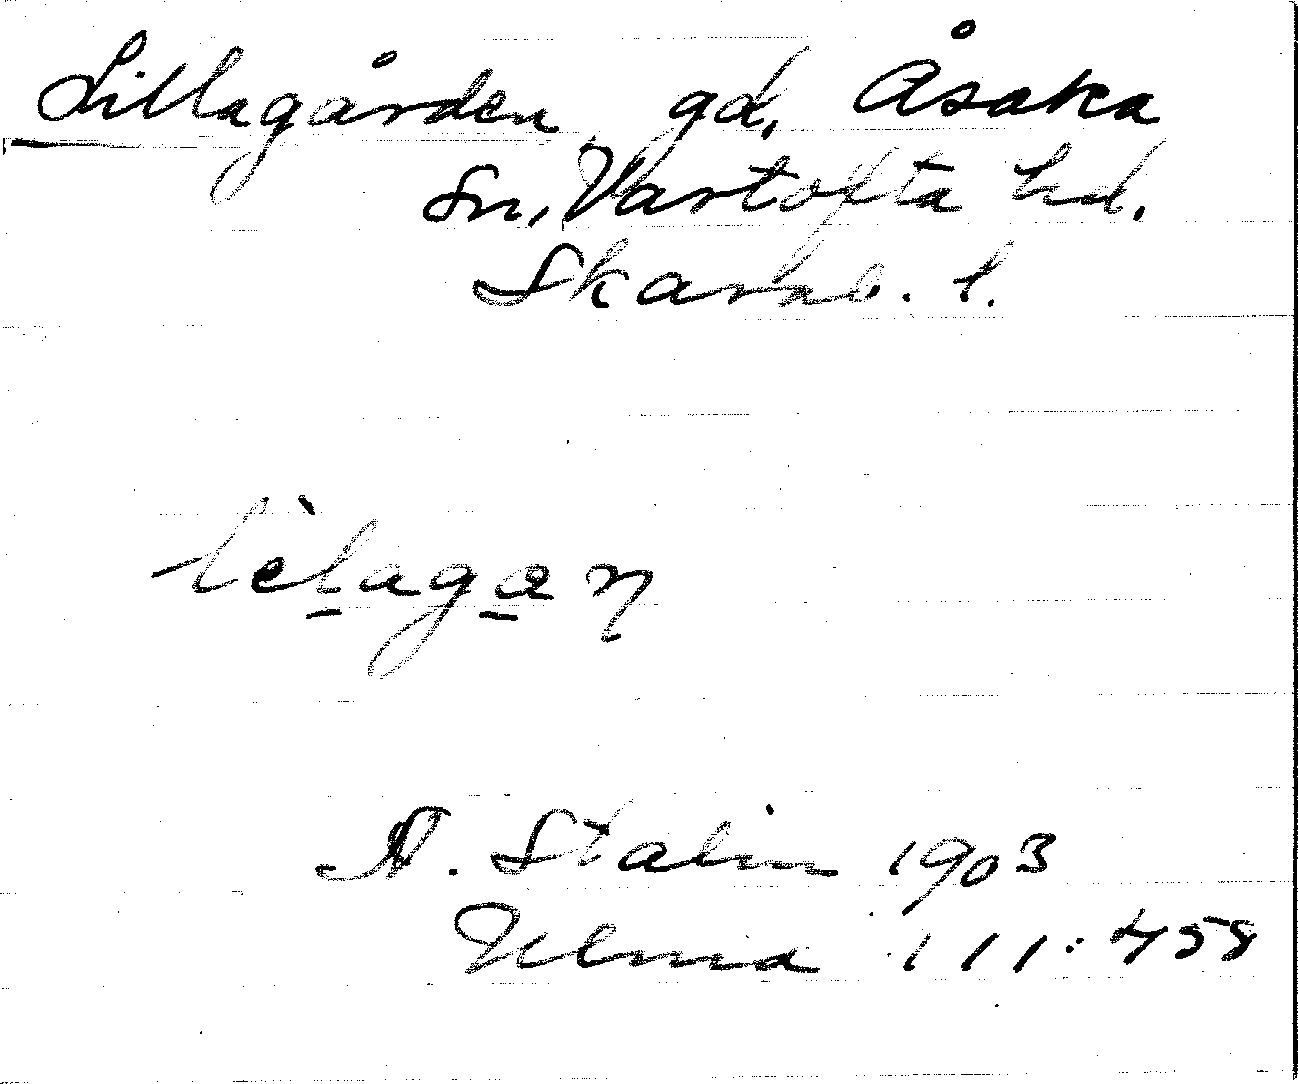 Lillagården gd, Åsaka
sn, Vartofta hd.
Skarab. l.
lèlagan
N. Stalin 1903
Ulma 111:458